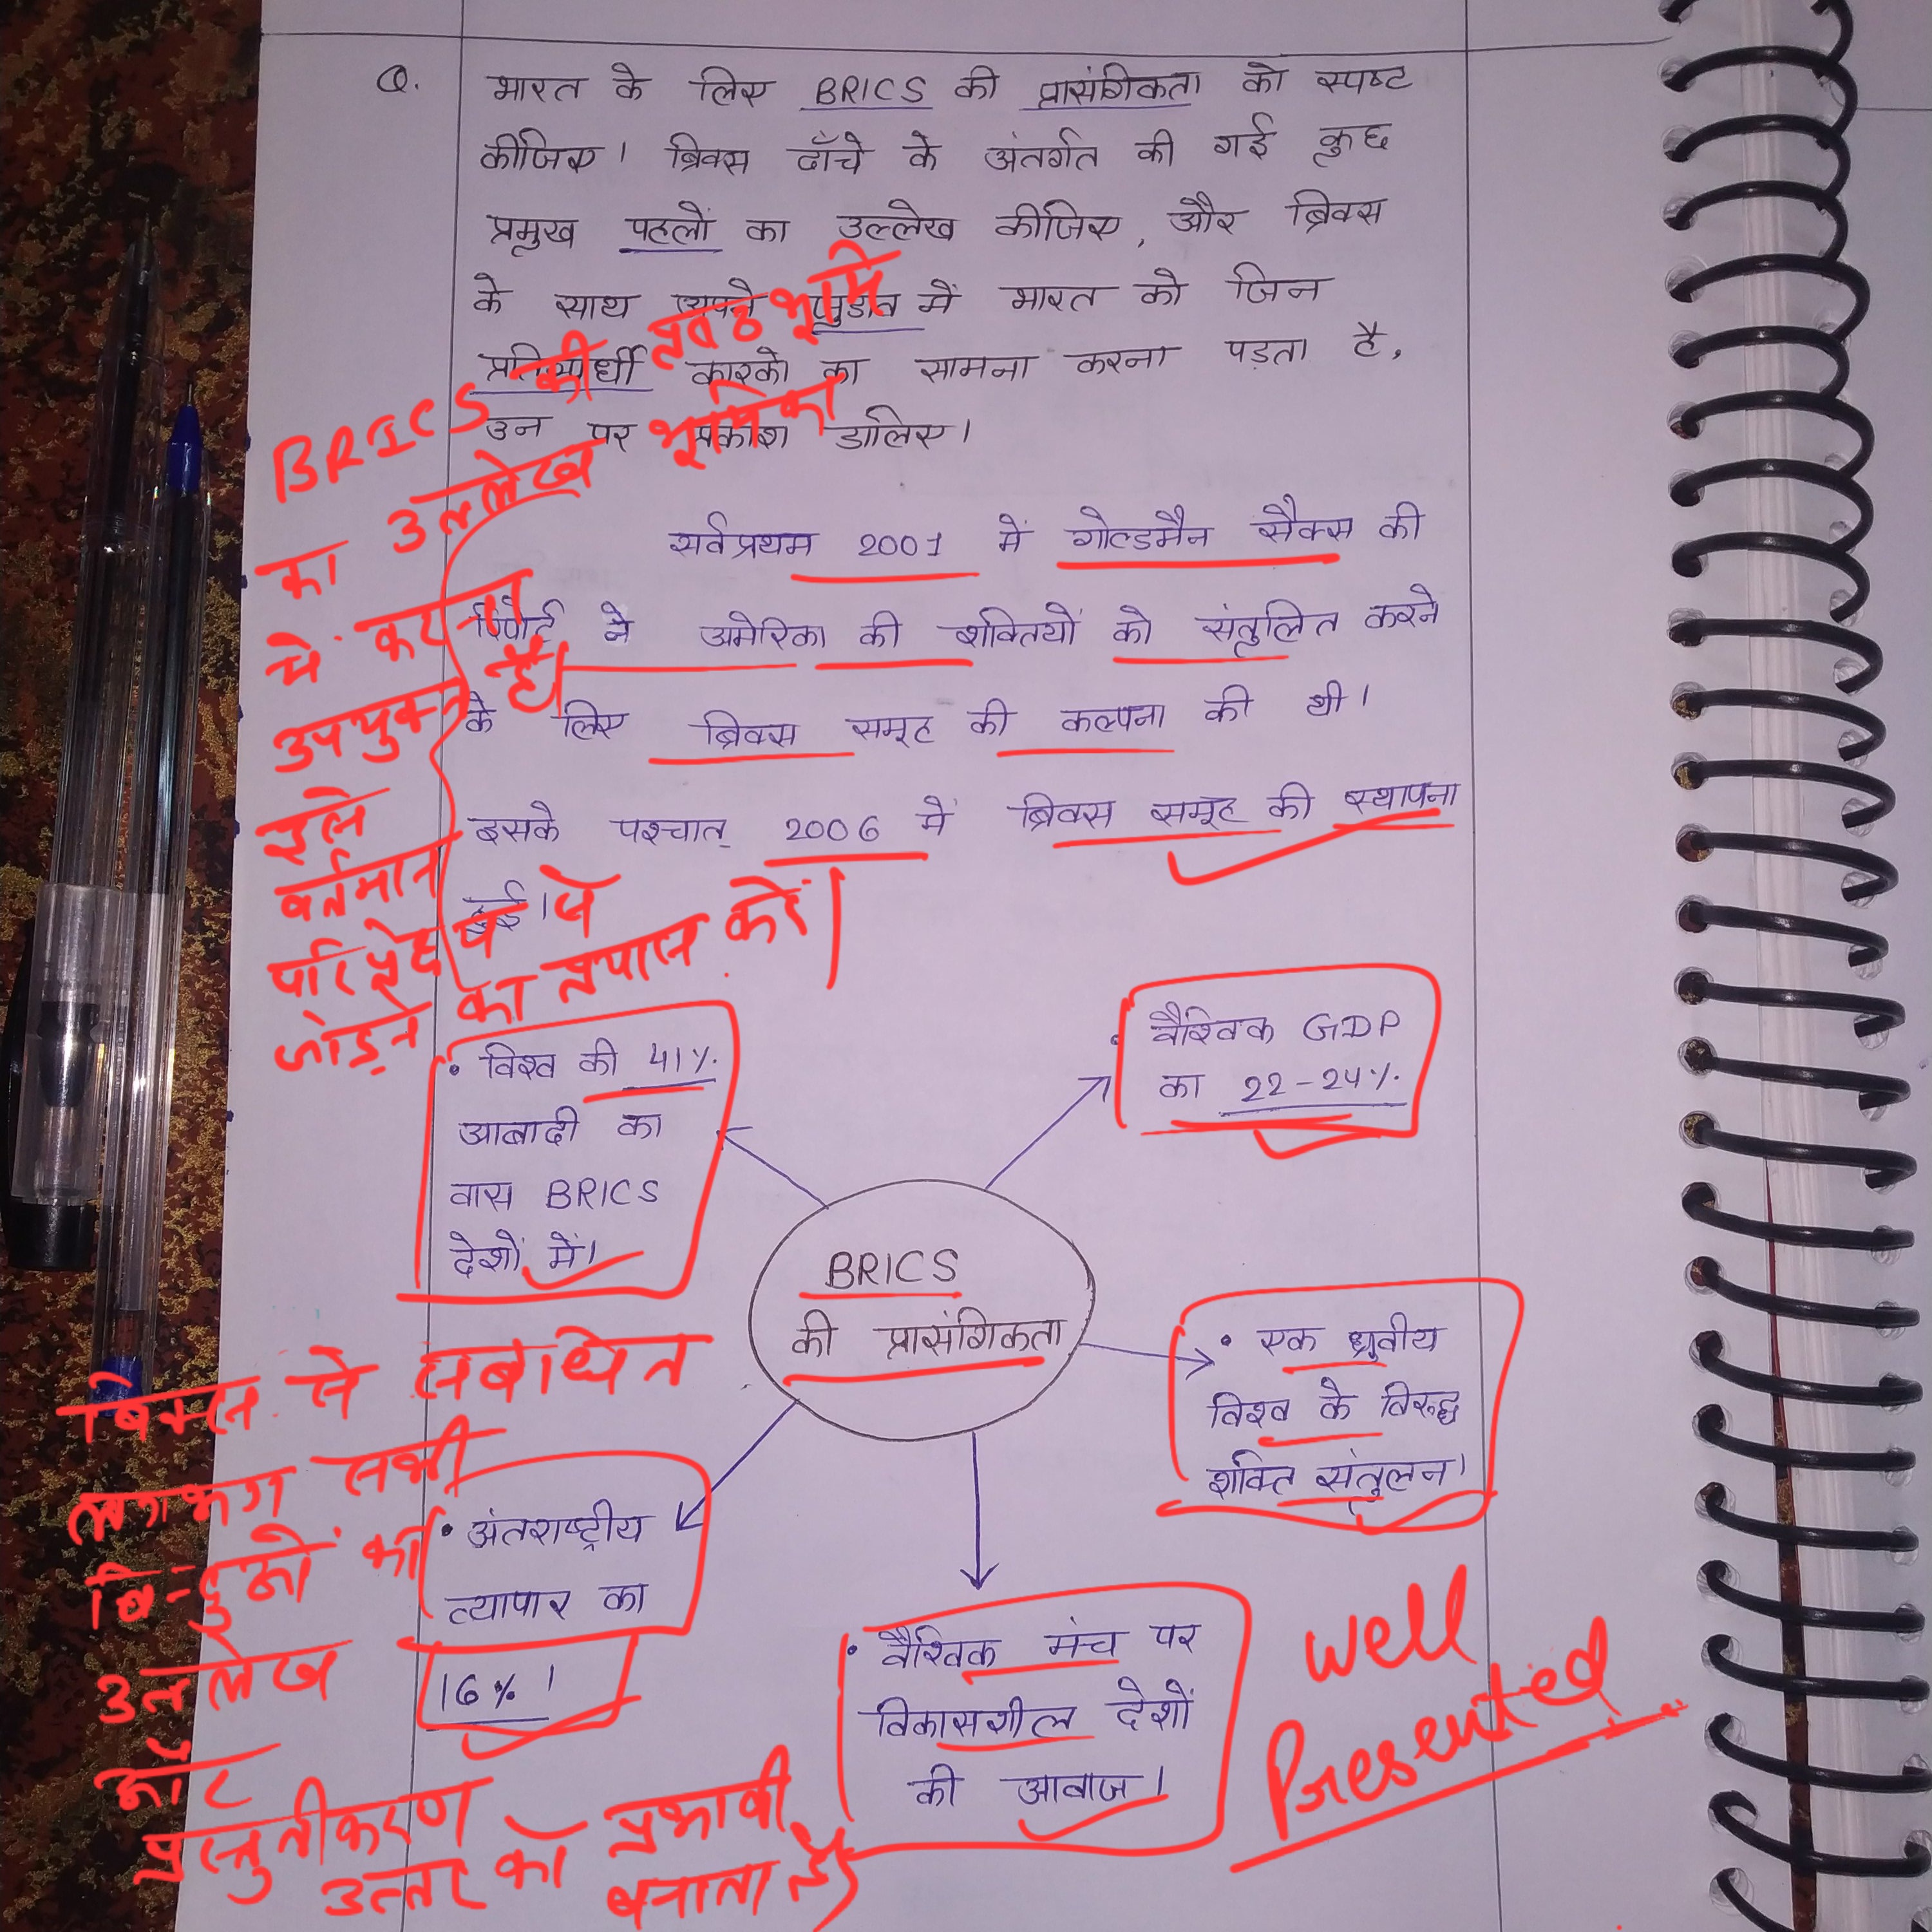 Q. भारत के लिए BRICS की प्रासंगिकता को स्पष्ट
कीजिए। ब्रिक्स ढाँचे के अंतर्गत की गई कुछ
प्रमुख पहलों का उल्लेख कीजिए, और ब्रिक्स
के साथ अपने जुड़ाव में भारत को जिन
प्रतिस्पर्धी कारकों का सामना करना पड़ता है,
उन पर प्रकाश डालिए।
BRICS की पृष्ठभूमि
का उल्लेख भूमिका
में करना
उपयुक्त है।
इसे
वर्तमान
परिप्रेक्ष्य से
जोड़ने का प्रयास करें।
सर्वप्रथम 2001 में गोल्डमैन सैक्स की
रिपोर्ट ने अमेरिका की शक्तियों को संतुलित करने
के लिए ब्रिक्स समूह की कल्पना की थी।
इसके पश्चात् 2006 में ब्रिक्स समूह की स्थापना
हुई।
• विश्व की 41%
आबादी का
वास BRICS
देशों में।
• वैश्विक GDP
का 22-24%.
BRICS
की प्रासंगिकता
• एक ध्रुवीय
विश्व के विरुद्ध
शक्ति संतुलन।
• अंतराष्ट्रीय
व्यापार का
16%।
• वैश्विक मंच पर
विकासशील देशों
की आवाज।
ब्रिक्स से संबंधित
लगभग सभी
बिन्दुओं का
उल्लेख
और
प्रस्तुतीकरण
उत्तर को प्रभावी
बनाता है।
Well
Presented